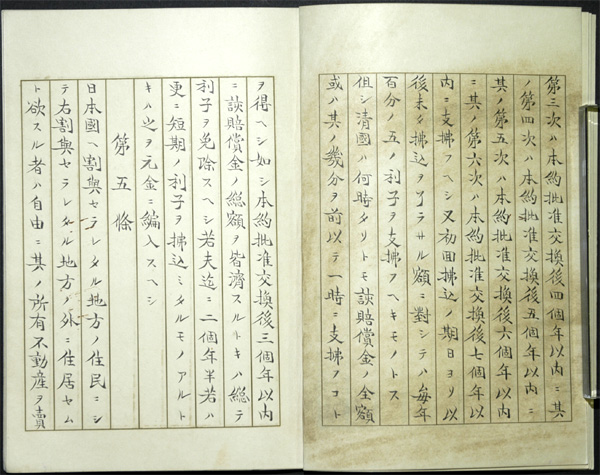 第三次ハ本約批准交換後四個年以内ニ其
ノ第四次ハ本約批准交換後五個年以内ニ
其ノ第五次ハ本約批准交換後六個年以内
ニ其ノ第六次ハ本約批准交換後七個年以
内ニ支拂フヘシ又初回拂込ノ期日ヨリ以
後未タ拂込ヲ了ラサル額ニ對シテハ毎年
百分ノ五ノ利子ヲ支拂フヘキモノトス
但シ清國ハ何時タリトモ該賠償金ノ全額
或ハ其ノ幾分ヲ前以テ一時ニ支拂フコト
ヲ得ヘシ如シ本約批准交換後三個年以内
ニ該賠償金ノ総額ヲ皆濟スルトキハ総テ
利子ヲ免除スヘシ若夫迄ニ二個年半若ハ
更ニ短期ノ利子ヲ拂込ミタルモノアルト
キハ之ヲ元金ニ編入スヘシ
第五條
日本國ヘ割與セラレタル地方ノ住民ニシ
テ右割與セラレタル地方ノ外ニ住居セム
ト欲スル者ハ自由ニ其ノ所有不動産ヲ賣